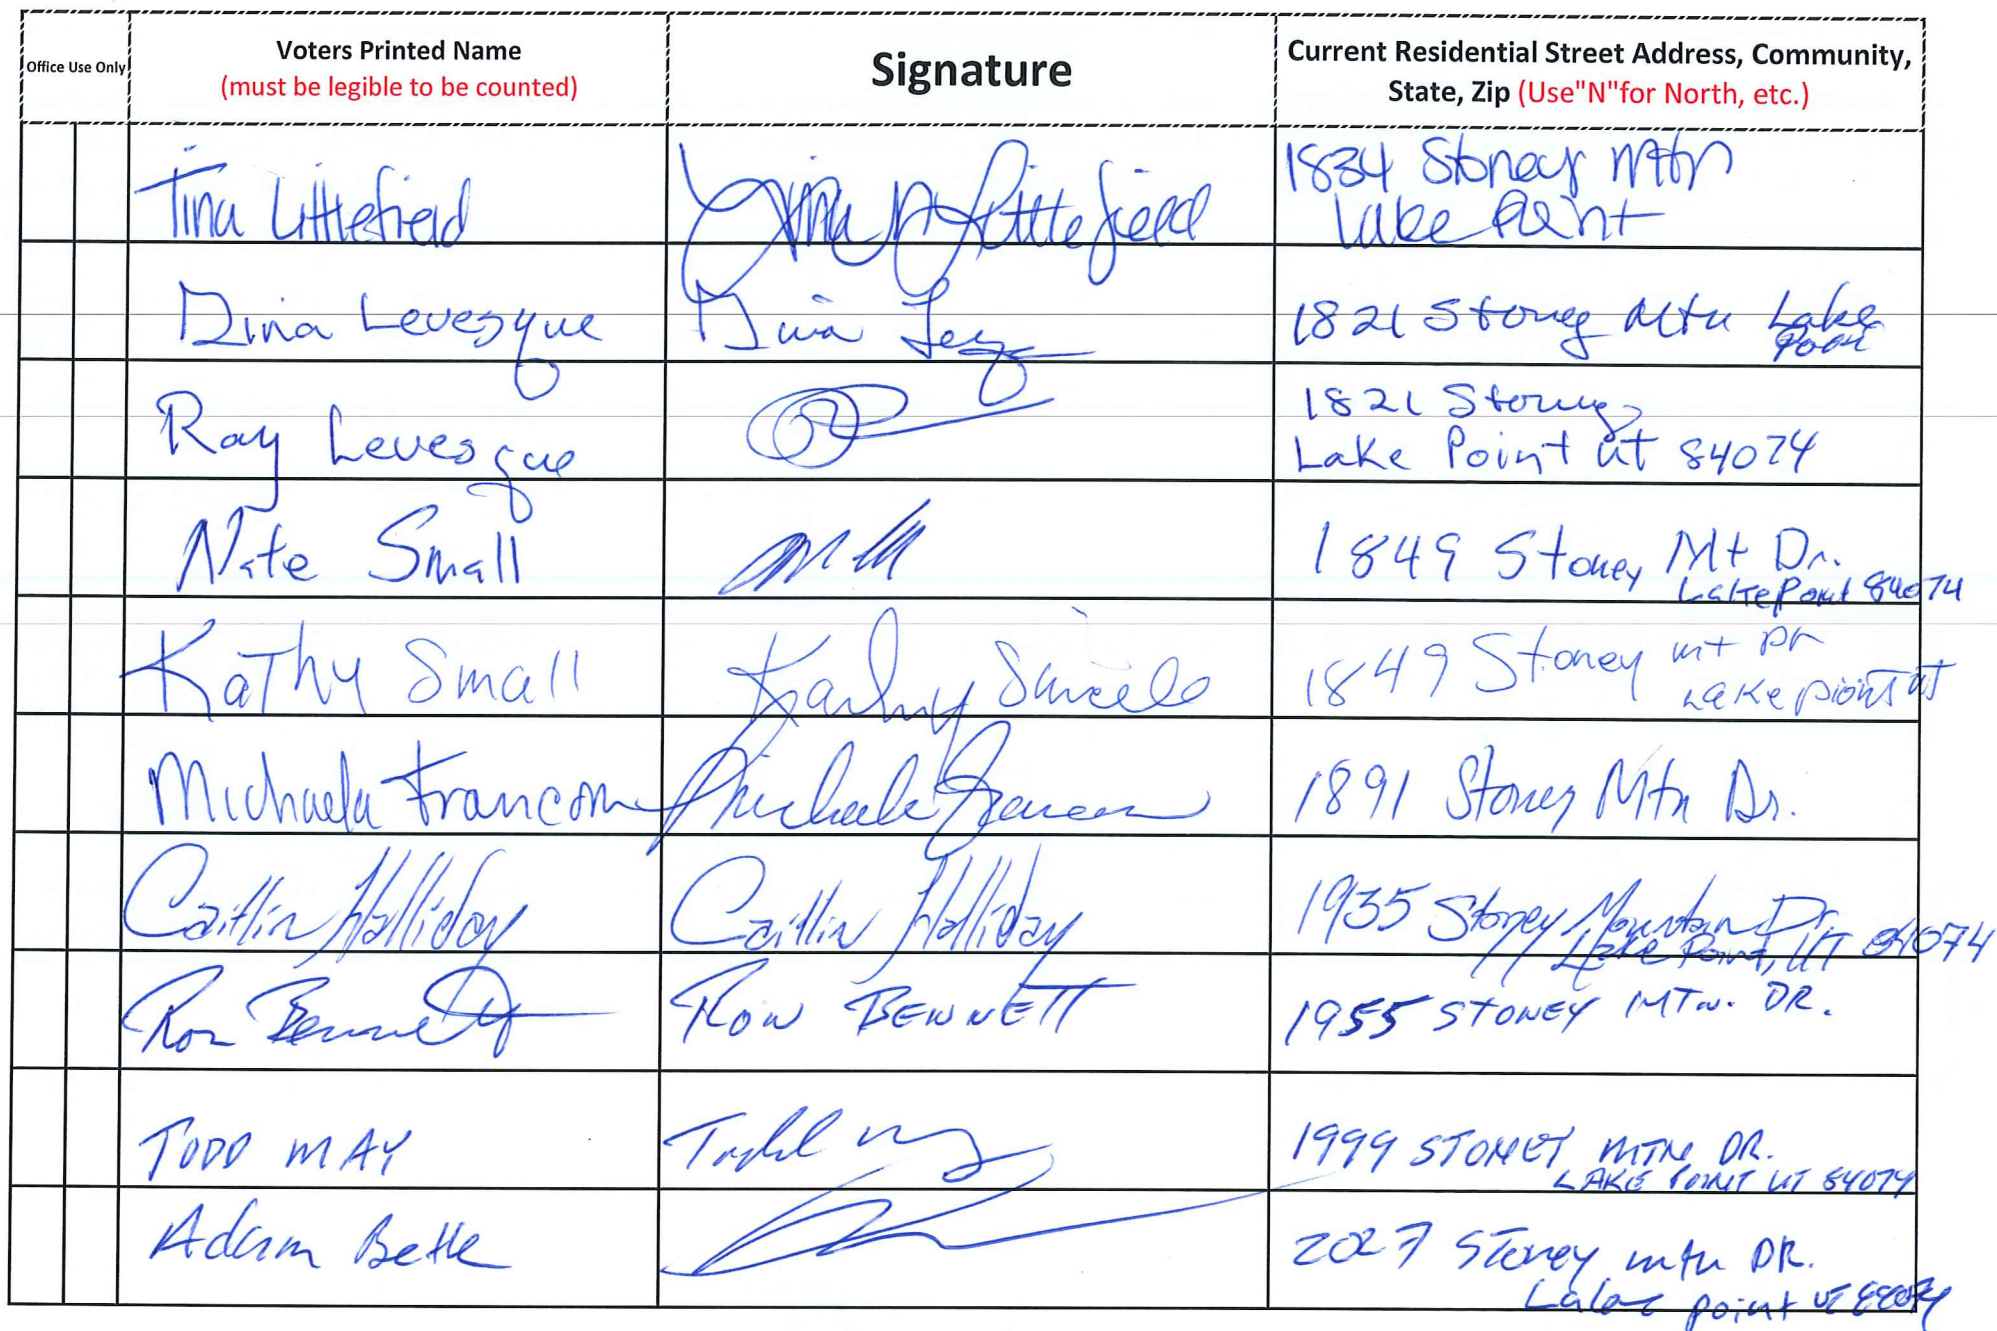 Office Use Only
Voters Printed Name
(must be legible to be counted)
Signature
Current Residential Street Address, Community,
State, Zip (Use"N"for North, etc.)
Tina Littlefield
Tina Littlefield
1834 Stoney Mtn
Lake Point
Dina Levesque
Dina
1821 Stoney Mtn Lake
Point
Ray Levesque
1821 Stoney
Lake Point Ut 84074
Nate Small
1849 Stoney Mt Dr.
Lake Point 84074
KaThy Small
Kathy Small
1849 Stoney mt Dr
Lake piont ut
Michaela Francom
Michaela Francom
1891 Stoney Mtn Dr.
Caitlin Halliday
Caitlin Halliday
1935 Stoney Mountain Dr.
Lake Point, UT 84074
Ron Bennett
RON BENNETT
1955 STONEY MTN. DR.
TODD MAY
Todd May
1999 STONEY MTN DR.
LAKE POINT UT 84074
Adam Betle
2027 Stoney mtn DR.
Lake point UT